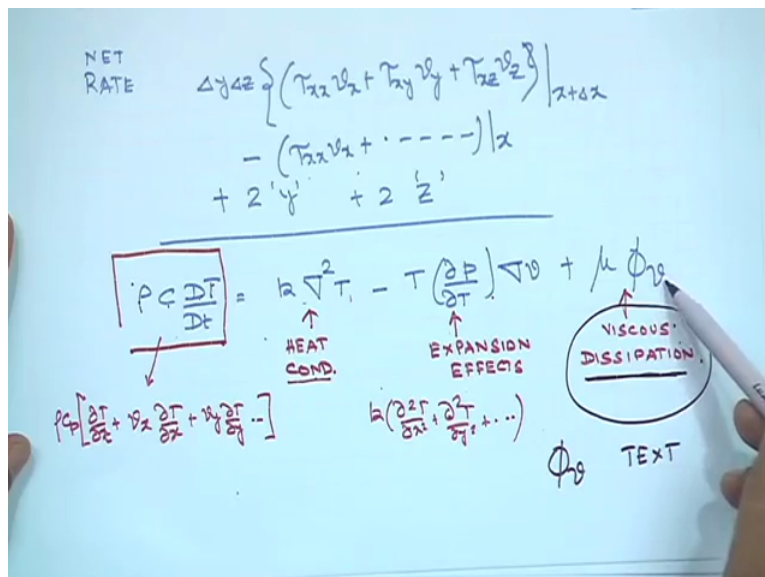 NET
RATE ΔyΔz {(τxx vx + τxy vy + τxz vz}|x+Δx
- (τxx vx + -----)|x
+ 2 'y' + 2 'z'
ρ C DT/Dt = k ∇²T, - T (∂P/∂T) ∇v + μ ϕv
HEAT COND.
EXPANSION EFFECTS
VISCOUS.
DISSIPATION.
ρCp[∂T/∂t + vx ∂T/∂x + vy ∂T/∂y ..] k(∂²T/∂x² + ∂²T/∂y² + ...)
ϕv TEXT